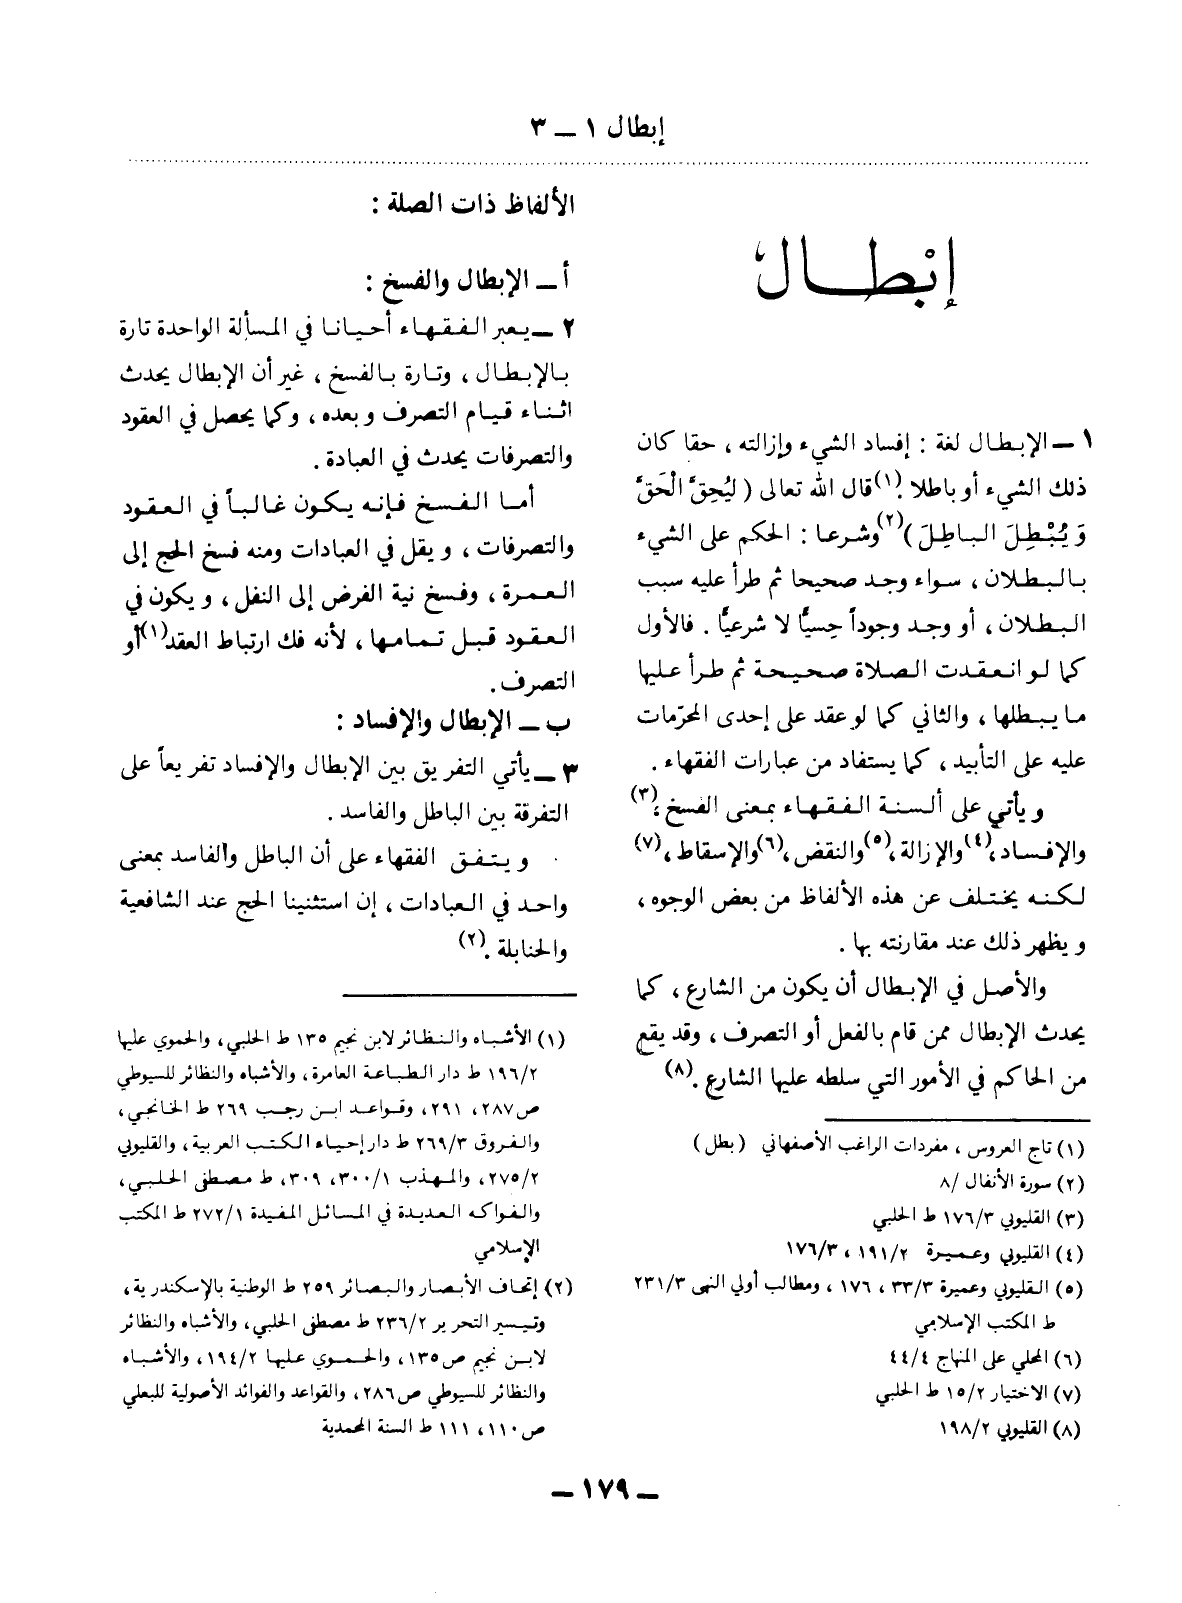 إبطال ١ ــ ٣
إبْطــال
١ ــ الإبطال لغة : إفساد الشيء وإزالته ، حقا كان
ذلك الشيء أو باطلا .(١) قال الله تعالى ( لِيُحِقَّ الْحَقَّ
وَيُبْطِلَ الباطِلَ )(٢) وشرعا : الحكم على الشيء
بالبطلان ، سواء وجد صحيحا ثم طرأ عليه سبب
البطلان ، أو وجد وجوداً حِسيًّا لا شرعيًّا . فالأول
كما لو انعقدت الصلاة صحيحة ثم طرأ عليها
ما يبطلها ، والثاني كما لو عقد على إحدى المحرّمات
عليه على التأبيد ، كما يستفاد من عبارات الفقهاء .
ويأتي على ألسنة الفقهاء بمعنى الفسخ ،(٣)
والإفساد ،(٤) والإزالة ،(٥) والنقض ،(٦) والإسقاط ،(٧)
لكنه يختلف عن هذه الألفاظ من بعض الوجوه ،
ويظهر ذلك عند مقارنته بها .
والأصل في الإبطال أن يكون من الشارع ، كما
يحدث الإبطال ممن قام بالفعل أو التصرف ، وقد يقع
من الحاكم في الأمور التي سلطه عليها الشارع .(٨)
(١) تاج العروس ، مفردات الراغب الأصفهاني ( بطل )
(٢) سورة الأنفال /٨
(٣) القليوبي ١٧٦/٣ ط الحلبي
(٤) القليوبي وعميرة ١٩١/٢ ، ١٧٦/٣
(٥) القليوبي وعميرة ٣٣/٣ ، ١٧٦ ، ومطالب أولي النهى ٢٣١/٣
ط المكتب الإسلامي
(٦) المحلي على المنهاج ٤٤/٤
(٧) الاختيار ١٥/٢ ط الحلبي
(٨) القليوبي ١٩٨/٢
الألفاظ ذات الصلة :
أ ــ الإبطال والفسخ :
٢ ــ يعبر الفقهاء أحيانا في المسألة الواحدة تارة
بالإبطال ، وتارة بالفسخ ، غير أن الإبطال يحدث
اثناء قيام التصرف وبعده ، وكما يحصل في العقود
والتصرفات يحدث في العبادة .
أما الفسخ فإنه يكون غالباً في العقود
والتصرفات ، ويقل في العبادات ومنه فسخ الحج إلى
العمرة ، وفسخ نية الفرض إلى النفل ، ويكون في
العقود قبل تمامها ، لأنه فك ارتباط العقد(١) أو
التصرف .
ب ــ الإبطال والإفساد :
٣ ــ يأتي التفريق بين الإبطال والإفساد تفريعاً على
التفرقة بين الباطل والفاسد .
ويتفق الفقهاء على أن الباطل والفاسد بمعنى
واحد في العبادات ، إن استثنينا الحج عند الشافعية
والحنابلة .(٢)
(١) الأشباه والنظائر لابن نجيم ١٣٥ ط الحلبي، والحموي عليها
١٩٦/٢ ط دار الطباعة العامرة ، والأشباه والنظائر للسيوطي
ص٢٨٧، ٢٩١، وقواعد ابن رجب ٢٦٩ ط الخانجي،
والفروق ٢٦٩/٣ ط دار إحياء الكتب العربية، والقليوبي
٢٧٥/٢، والمهذب ٣٠٠/١، ٣٠٩، ط مصطفى الحلبي،
والفواكه العديدة في المسائل المفيدة ٢٧٢/١ ط المكتب
الإسلامي
(٢) إتحاف الأبصار والبصائر ٢٥٩ ط الوطنية بالإسكندرية،
وتيسير التحرير ٢٣٦/٢ ط مصطفى الحلبي، والأشباه والنظائر
لابن نجيم ص١٣٥، والحموي عليها ١٩٤/٢، والأشباه
والنظائر للسيوطي ص٢٨٦، والقواعد والفوائد الأصولية للبعلي
ص١١٠، ١١١ ط السنة المحمدية
ــ ١٧٩ ــ